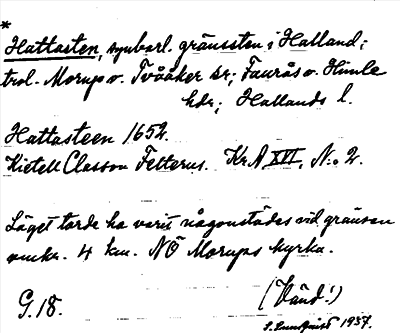 *
Hattasten, synbarl. gränssten i Halland;
trol. Morup o. Tvååker sr; Faurås o. Himle
hdr; Hallands l.
Hattasteen 1652.
Kietell Classon Felterus. KrA XVI, N:o 2.
Läget torde ha varit någonstädes vid gränsen
omkr. 4 km. NÖ Morups kyrka.
G. 18.
(Vänd!)
S. Lundqvist 1937.